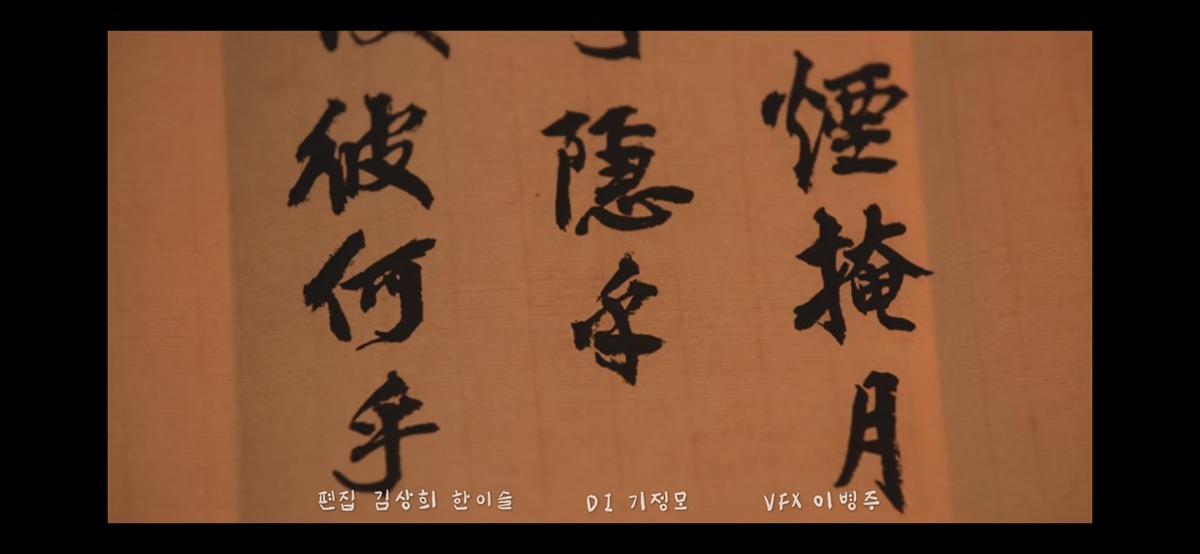 煙掩月
隱乎
彼何乎
편집 김상희 한이슬 DI 기정모 VFX 이병주